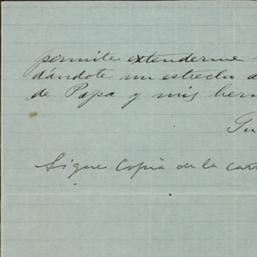 permite extenderme
dándote un estrecho a
de Papa y mis her
Tu
Sigue Copia de la car